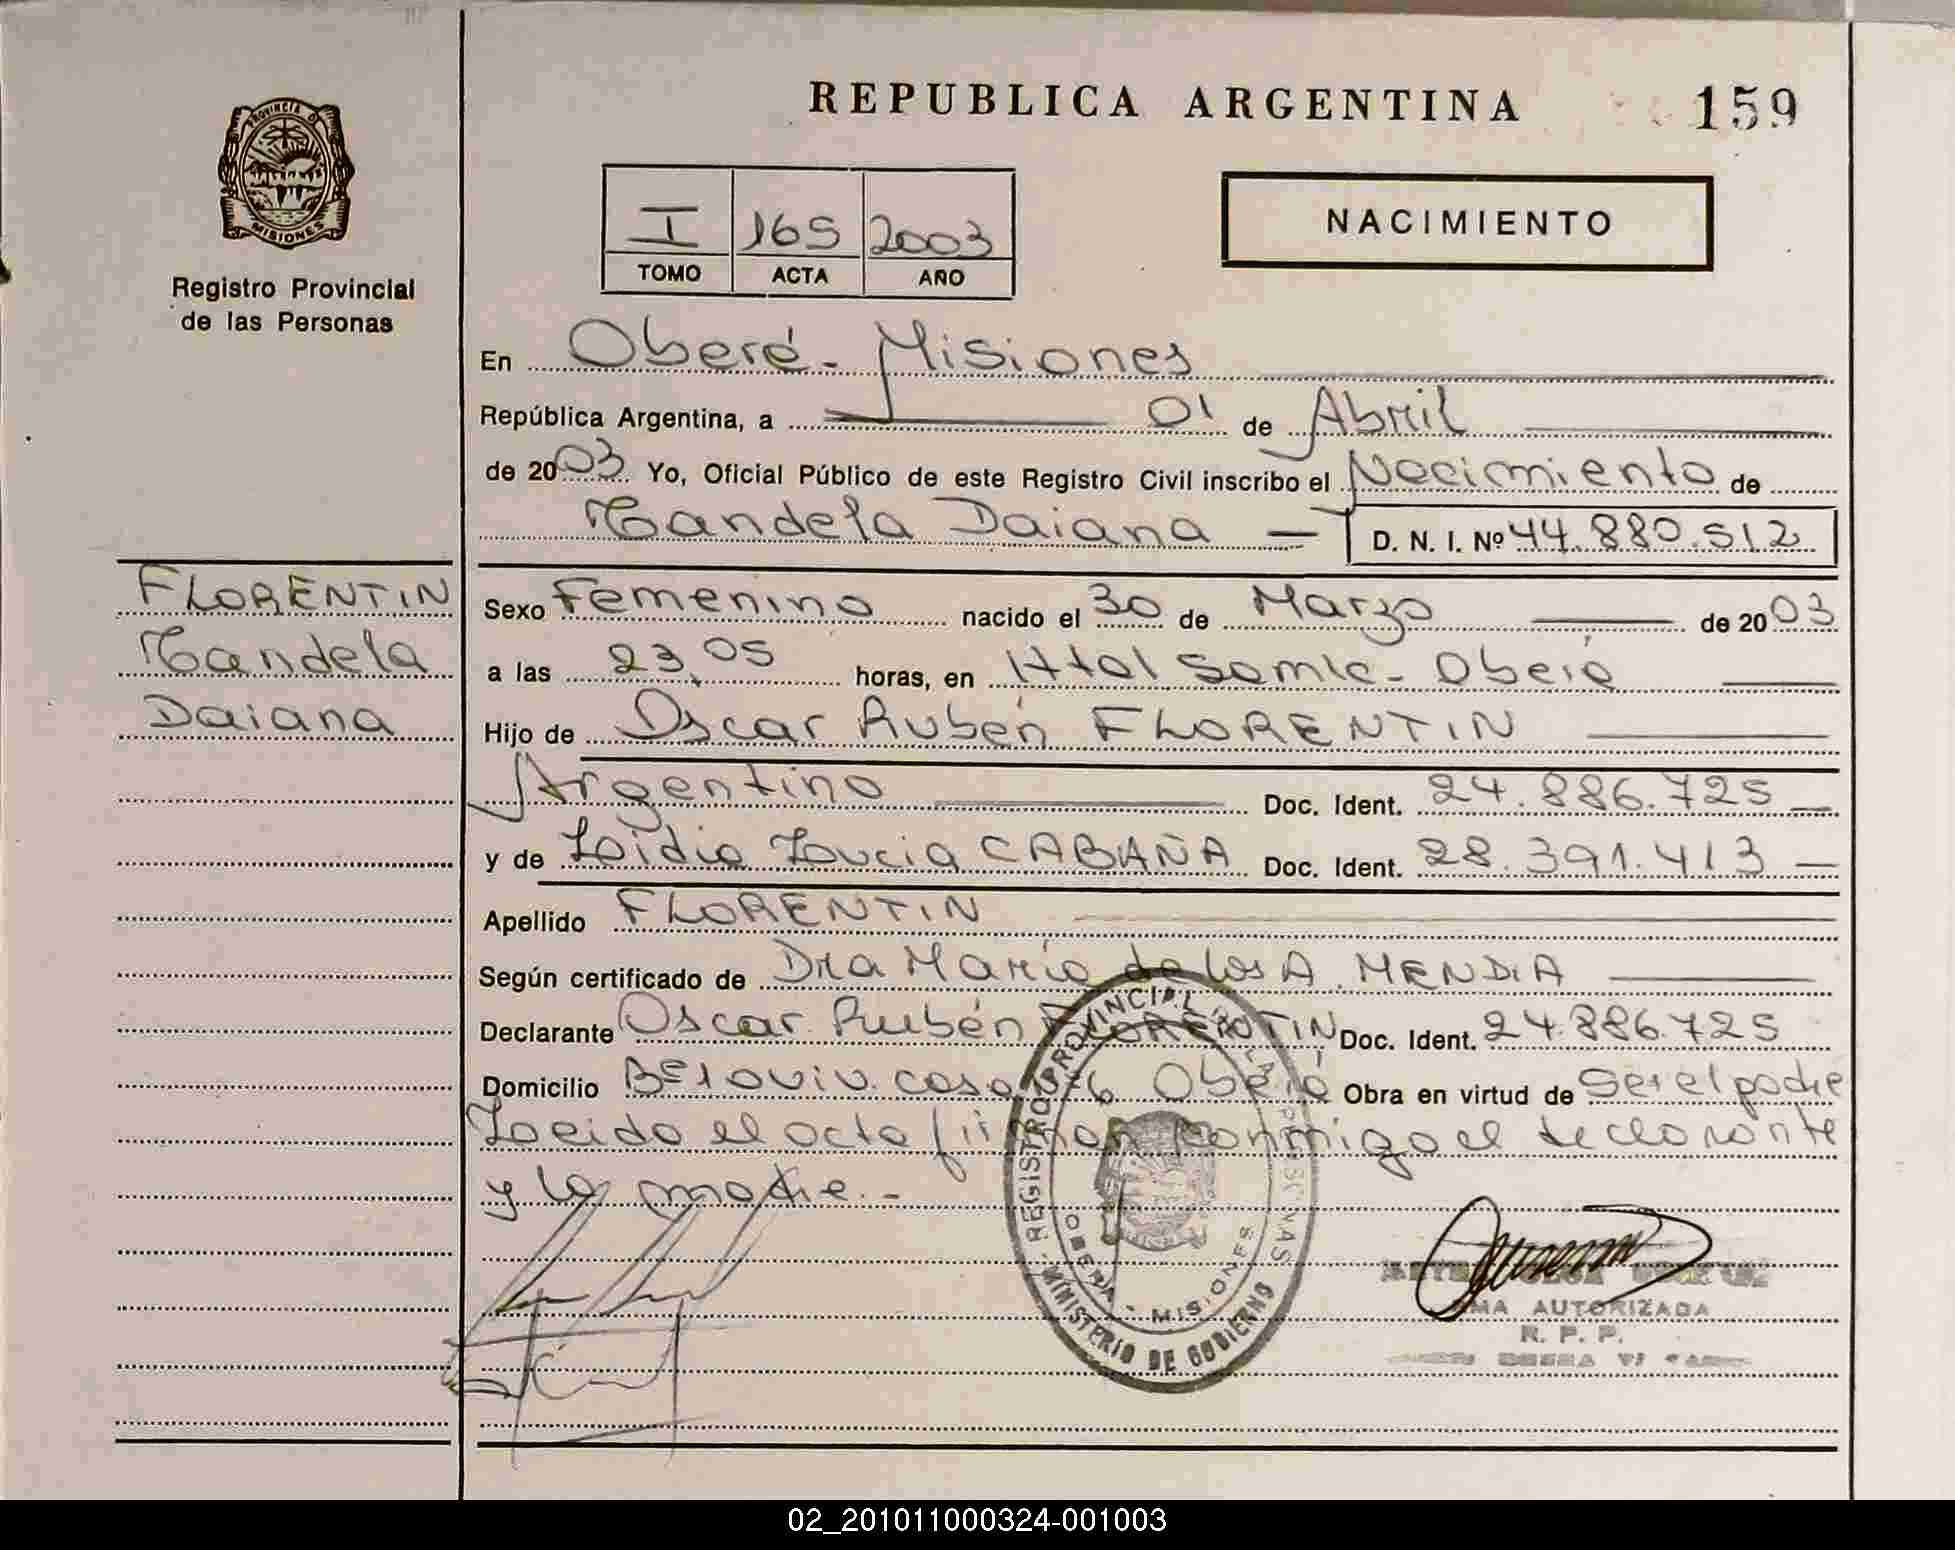 REPUBLICA ARGENTINA
159
PROVINCIA D
MISIONES
Registro Provincial
de las Personas
I 165 2003
TOMO ACTA AÑO
NACIMIENTO
En Oberá - Misiones
República Argentina, a 01 de Abril
de 2003 Yo, Oficial Público de este Registro Civil inscribo el Nacimiento de
Candela Daiana D. N. I. Nº 44.880.512
FLORENTIN
Candela
Daiana
Sexo Femenino nacido el 30 de Marzo de 2003
a las 23,05 horas, en Htal Samic - Oberá
Hijo de Oscar Rubén FLORENTIN
Argentino Doc. Ident. 24.886.725
y de Lidia Lucia CABAÑA Doc. Ident. 28.391.413
Apellido FLORENTIN
Según certificado de Dra María de los A. MENDIA
Declarante Oscar Rubén FLORENTIN Doc. Ident. 24.886.725
Domicilio Bº 180 viv. casa 176 Oberá Obra en virtud de ser el padre
Leido el acta firman conmigo el declarante
y la madre.-
REGISTRO PROVINCIAL DE LAS PERSONAS
OBERA - MISIONES
MINISTERIO DE GOBIERNO
FIRMA AUTORIZADA
R. P. P.
02_201011000324-001003